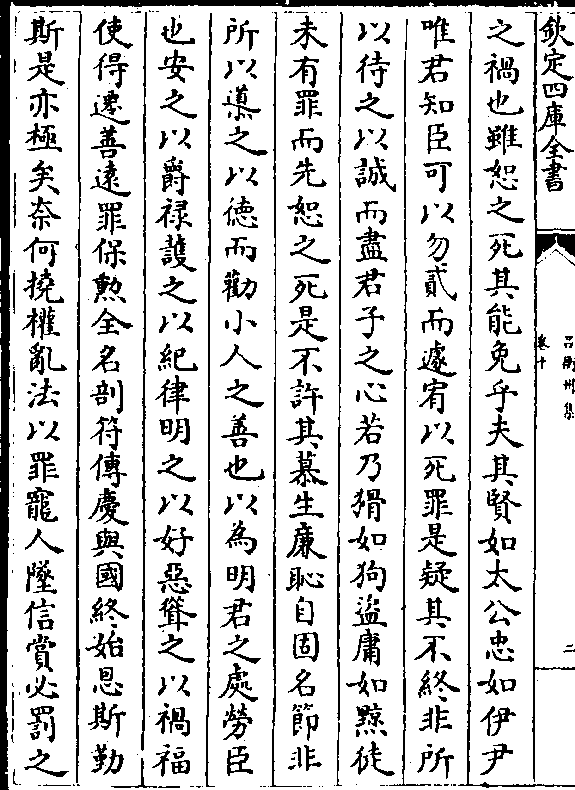 欽定四庫全書
呂衡州集
卷十
二
之禍也雖恕之死其能免乎夫其賢如太公忠如伊尹
唯君知臣可以勿貳而遽宥以死罪是疑其不終非所
以待之以誠而盡君子之心若乃猾如狗盜庸如黥徒
未有罪而先恕之死是不許其慕生廉恥自固名節非
所以導之以德而勸小人之善也以為明君之處勞臣
也安之以爵祿護之以紀律明之以好惡聳之以禍福
使得遷善遠罪保勲全名剖符傳慶與國終始恩斯勤
斯是亦極矣奈何撓權亂法以罪寵人墮信賞必罰之